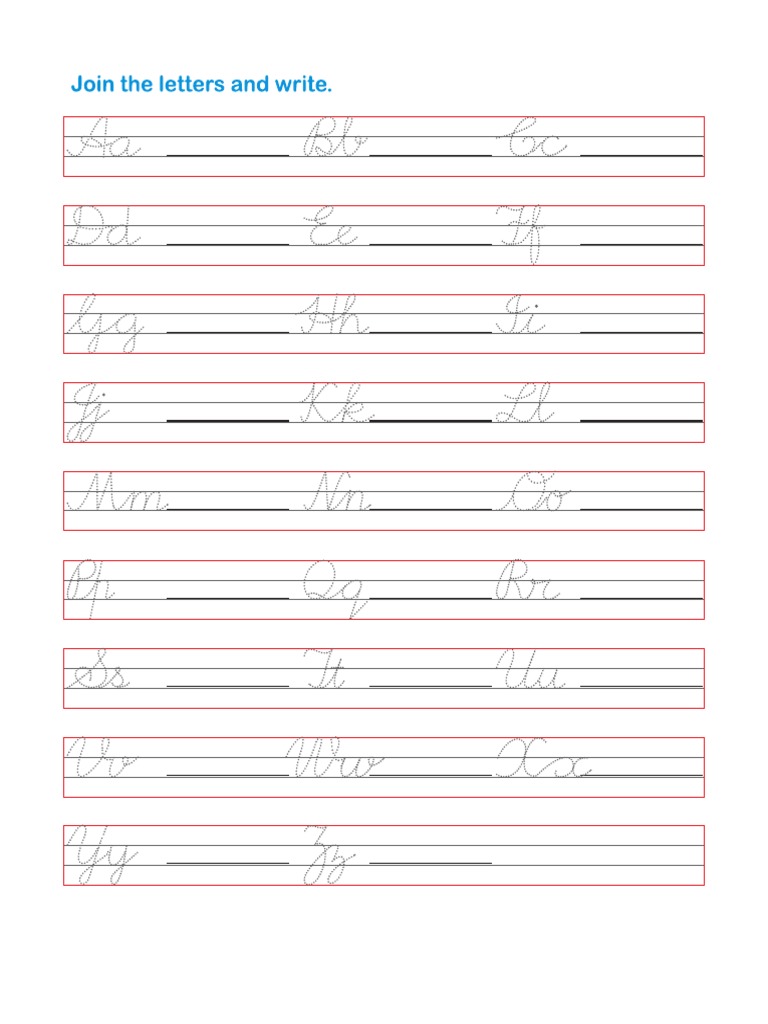 Join the letters and write.
Aa Bb Cc
Dd Ee Ff
Gg Hh Ii
Jj Kk Ll
Mm Nn Oo
Pp Qq Rr
Ss Tt Uu
Vv Ww Xx
Yy Zz